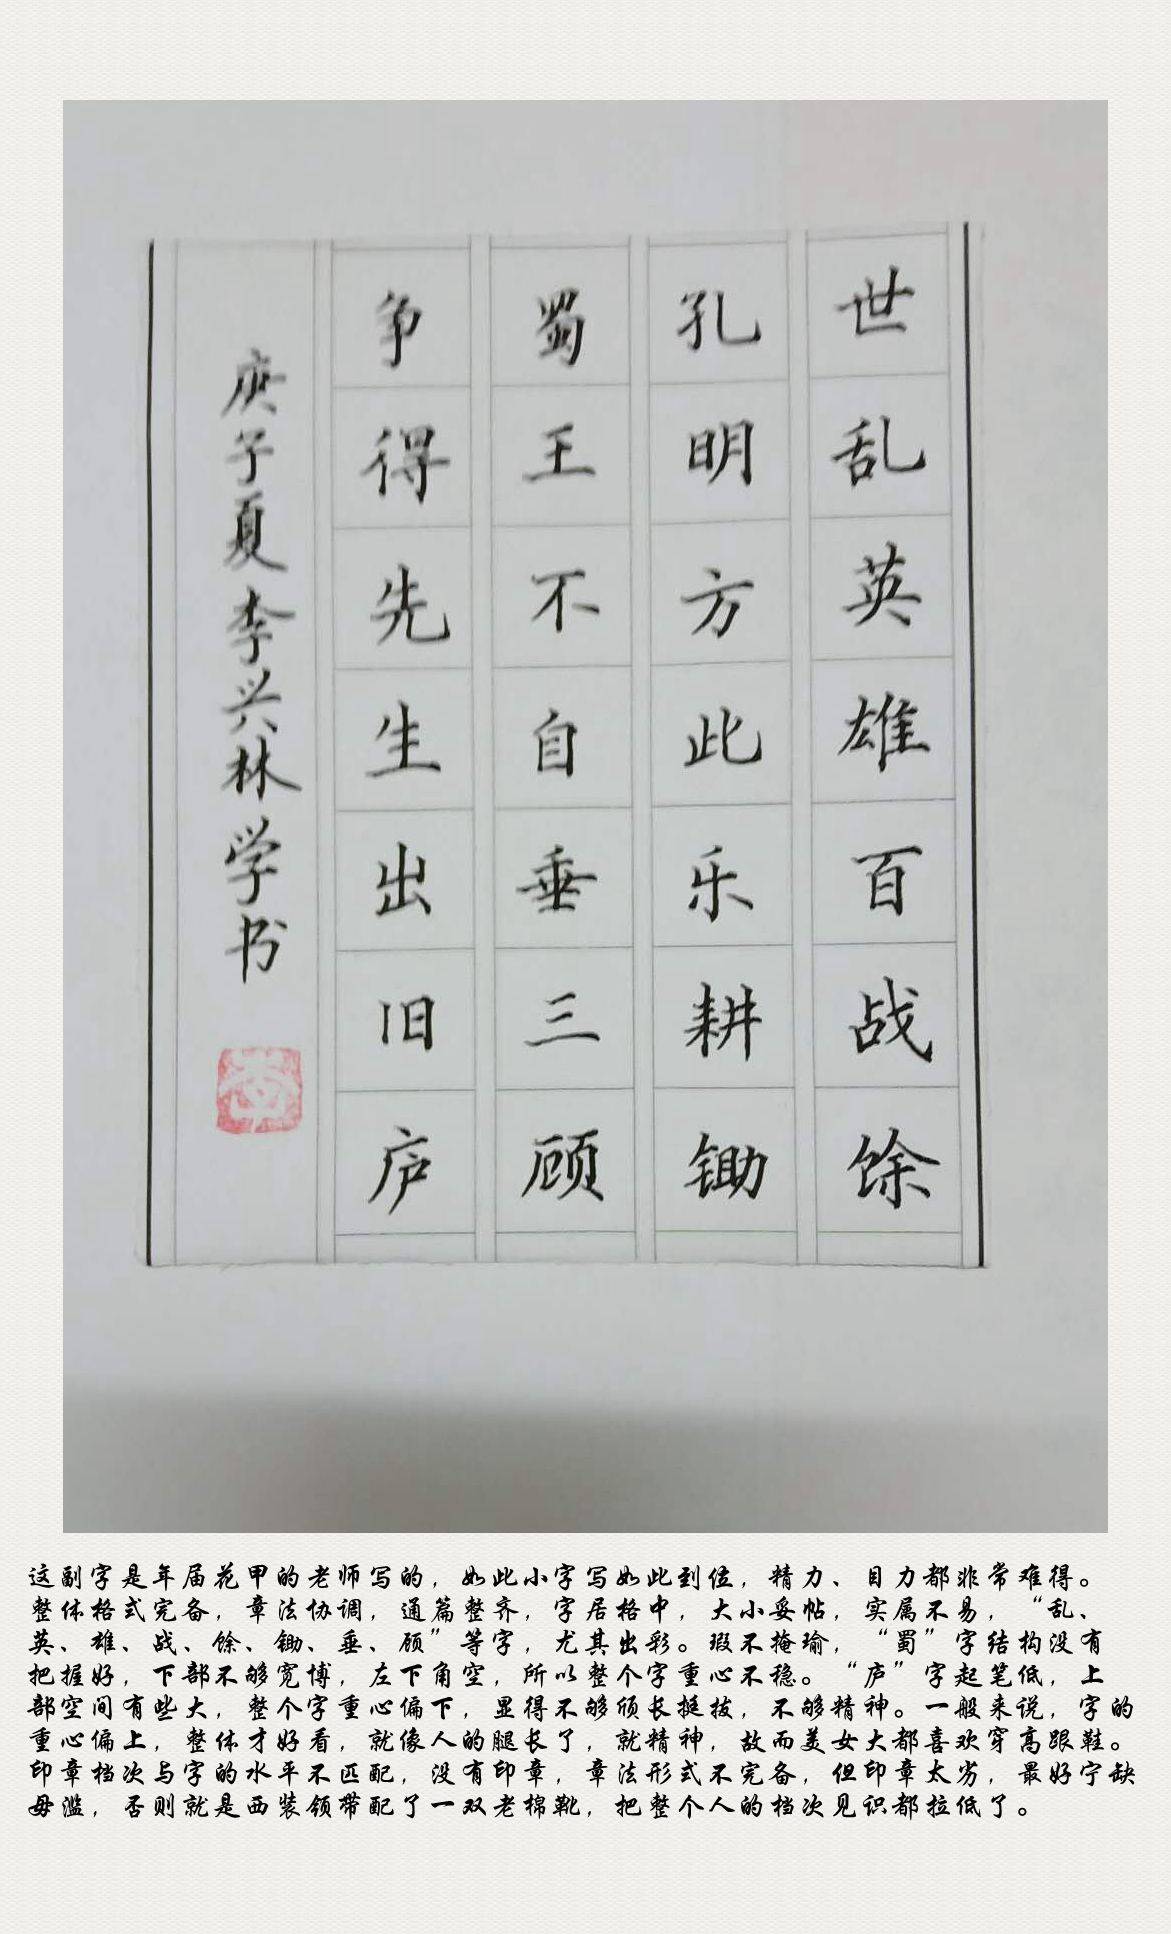 世乱英雄百战馀
孔明方此乐耕锄
蜀王不自垂三顾
争得先生出旧庐
庚子夏李兴林学书
这副字是年届花甲的老师写的，如此小字写如此到位，精力、目力都非常难得。
整体格式完备，章法协调，通篇整齐，字居格中，大小妥帖，实属不易，“乱、
英、雄、战、馀、锄、垂、顾”等字，尤其出彩。瑕不掩瑜，“蜀”字结构没有
把握好，下部不够宽博，左下角空，所以整个字重心不稳。“庐”字起笔低，上
部空间有些大，整个字重心偏下，显得不够颀长挺拔，不够精神。一般来说，字的
重心偏上，整体才好看，就像人的腿长了，就精神，故而美女大都喜欢穿高跟鞋。
印章档次与字的水平不匹配，没有印章，章法形式不完备，但印章太劣，最好宁缺
毋滥，否则就是西装领带配了一双老棉靴，把整个人的档次见识都拉低了。